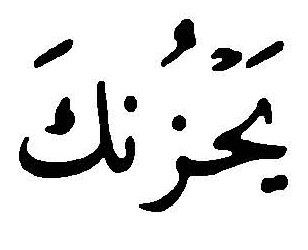 يَحْزُنكَ